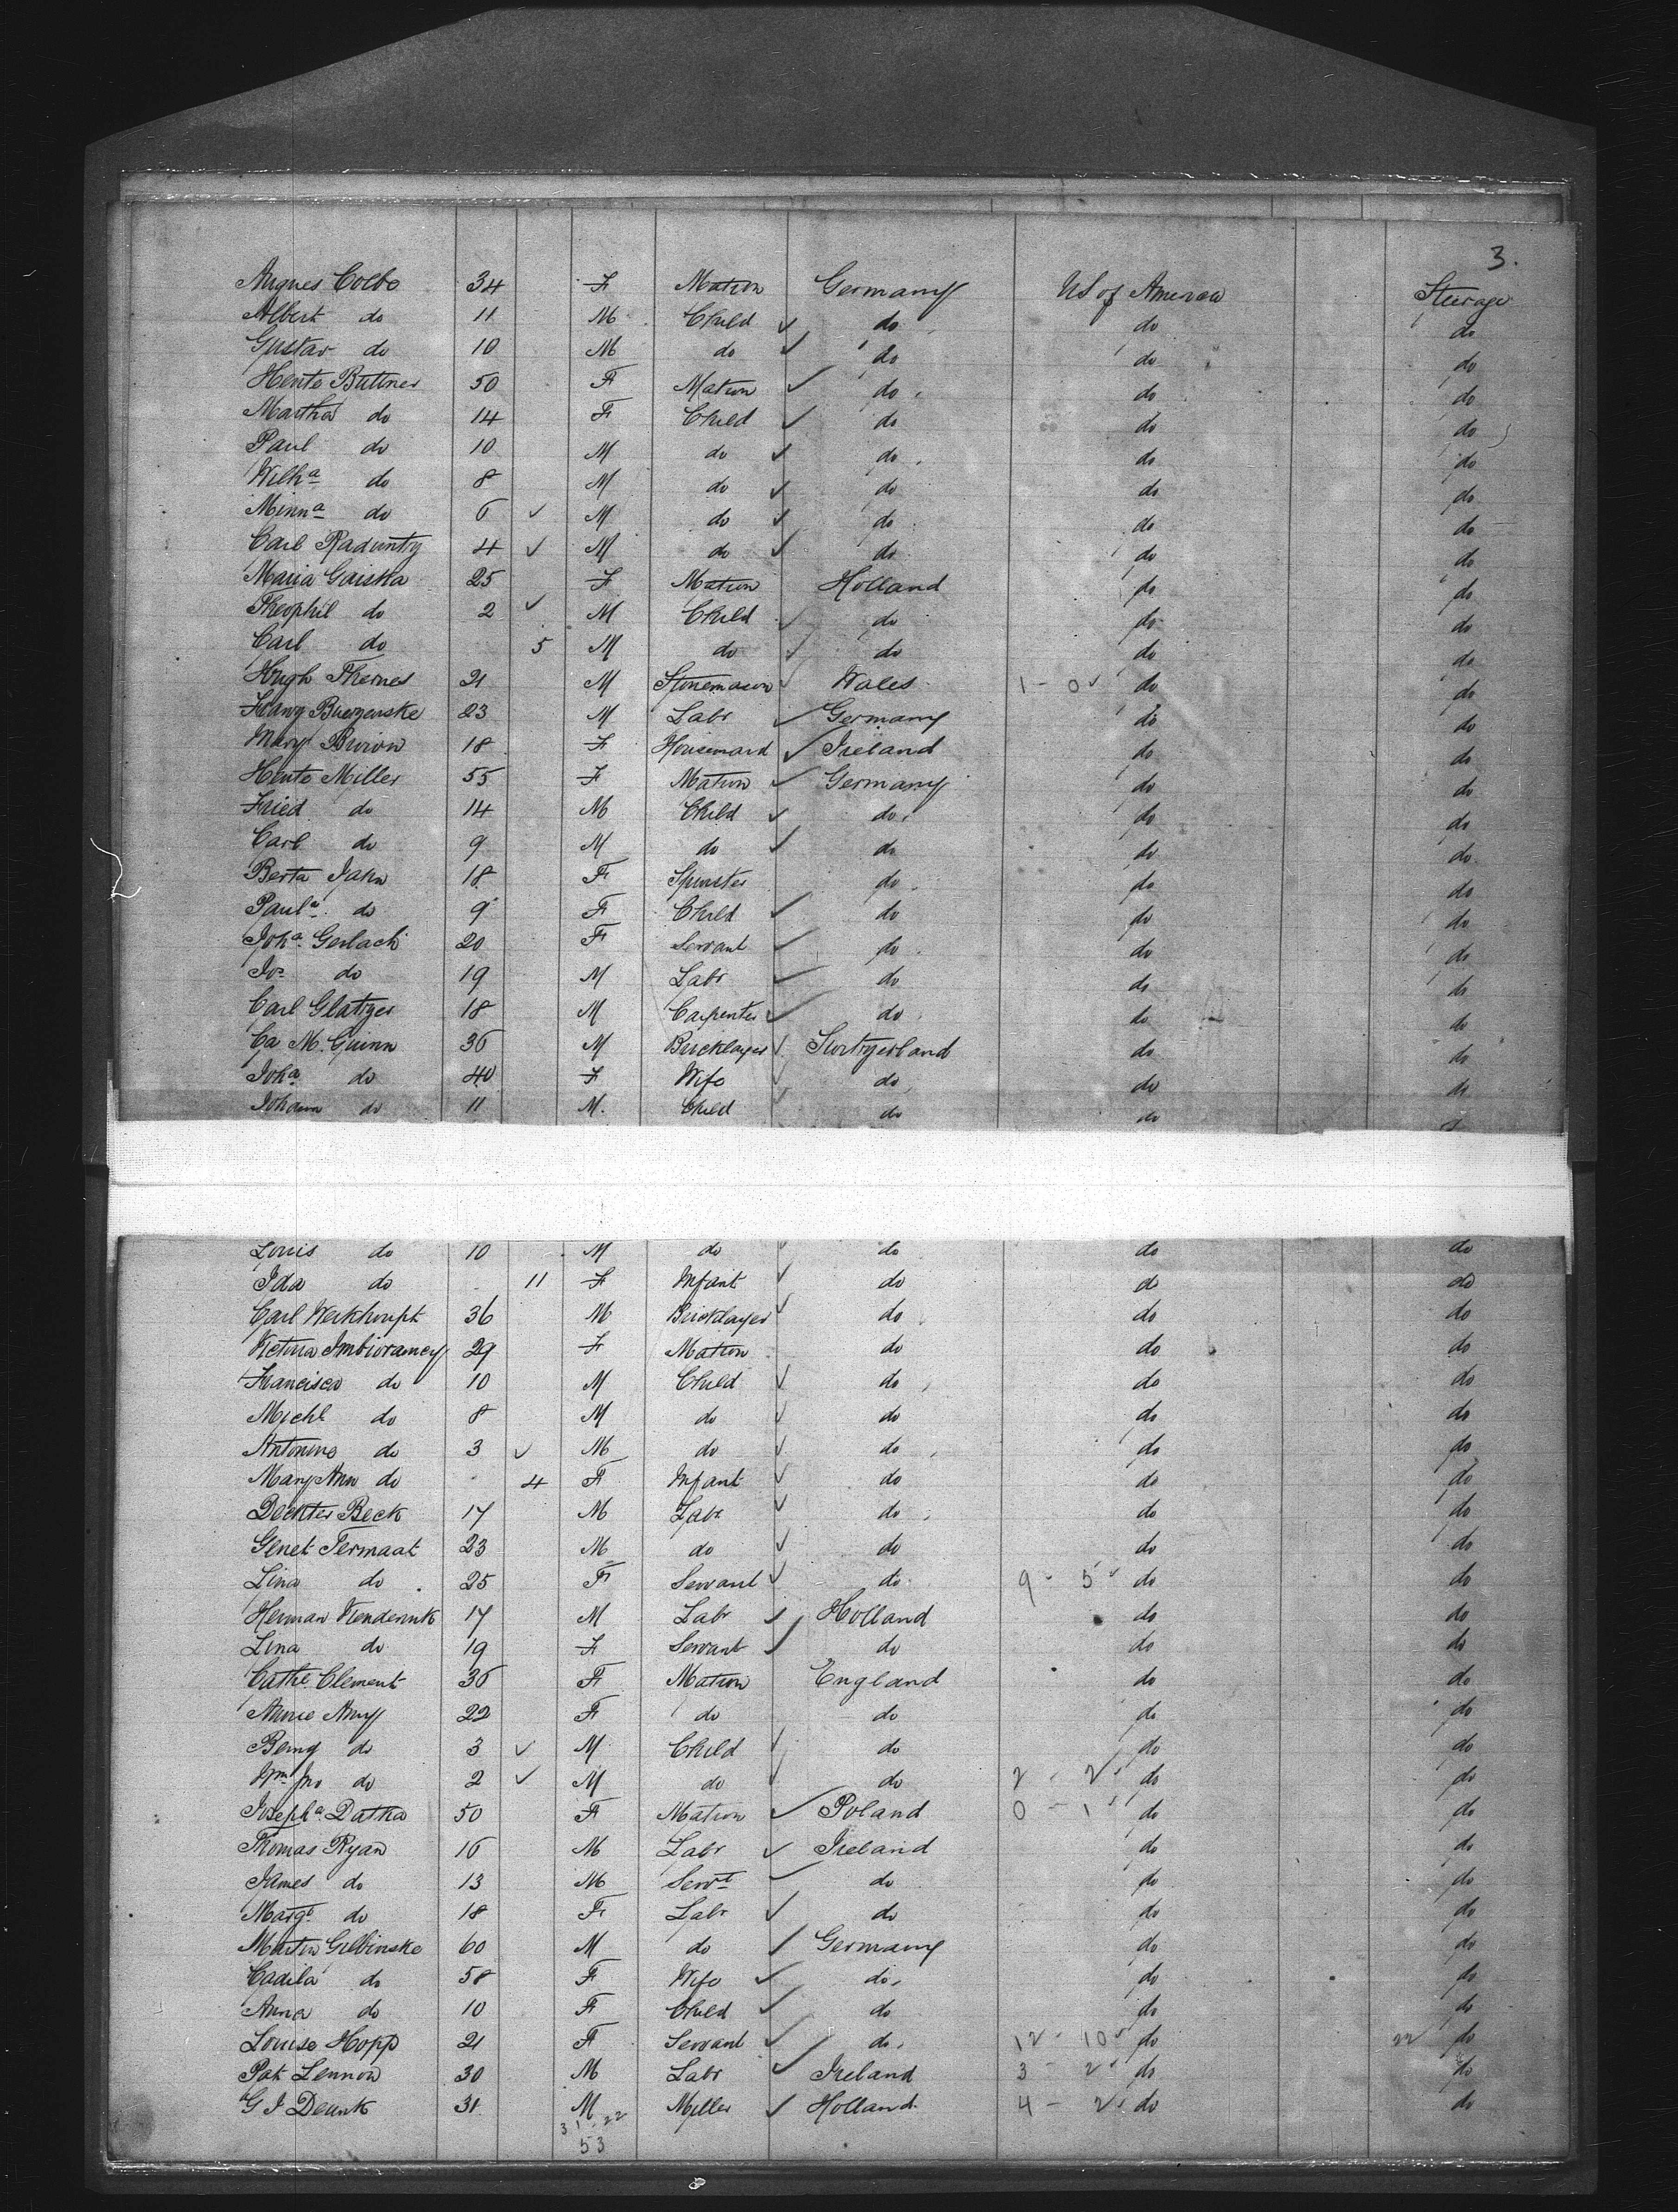 3.
Augnes Colbe 34 F Matron Germany US of America Steerage
Albert do 11 M Child ✓ do do do
Gustav do 10 M do ✓ do do do
Hente Buttner 50 F Matron ✓ do do do
Martha do 14 F Child ✓ do do do
Paul do 10 M do ✓ do do do
Wilha do 8 M do ✓ do do do
Minna do 6 ✓ M do ✓ do do do
Carl Raduntzy 4 ✓ M do ✓ do do do
Maria Gaiska 25 F Matron Holland do do
Theophil do 2 ✓ M Child ✓ do do do
Carl do 5 M do ✓ do do do
Hugh Thernes 21 M Stonemason ✓ Wales 1 - 0 ✓ do do
23 M Labr ✓ Germany do do
Mary 18 F Housemaid ✓ Ireland do do
Hente Miller 55 F Matron ✓ Germany do do
Fried do 14 M Child ✓ do do do
Carl do 9 M do ✓ do do do
Berta Jahn 18 F Spinster do do do
Paula do 9 F Child ✓ do do do
Joha Gerlach 20 F Servant ✓ do do do
Jos do 19 M Labr ✓ do do do
Carl Glatzer 18 M Carpenter ✓ do do do
Ca M. Guinn 36 M Bricklayer ✓ Switzerland do do
Joha do 40 F Wife ✓ do do do
Johann do 11 M. Child ✓ do do
Louis do 10 M do ✓ do do do
Ida do 11 F Infant ✓ do do do
Carl Werkhoupt 36 M Bricklayer ✓ do do do
Victoria 29 F Matron do do do
Francisca do 10 M Child ✓ do do do
Michl do 8 M do ✓ do do do
Antonine do 3 ✓ M do ✓ do do do
Mary Ann do 4 F Infant ✓ do do do
Beck 17 M Labr ✓ do do do
Genet Termaat 23 M do ✓ do do do
Lina do 25 F Servant ✓ do 9 - 5 ✓ do do
Herman 17 M Labr ✓ Holland do do
Lina do 19 F Servant ✓ do do do
Cathe Clement 36 F Matron England do do
Annie Amy 22 F do do do do
do 3 ✓ M Child ✓ do do do
Wm Jno do 2 ✓ M do ✓ do 2 - 2 ✓ do do
Josepha Datka 50 F Matron ✓ Poland 0 - 1 ✓ do do
Thomas Ryan 16 M Labr ✓ Ireland do do
James do 13 M Servt ✓ do do do
Margt do 18 F Labr ✓ do do do
Martin Gilbinske 60 M do ✓ Germany do do
Cadila do 58 F Wife ✓ do do do
Anna do 10 F Child ✓ do do do
Louise Hopp 21 F Servant ✓ do 12 - 10 ✓ do 22 do
Pat Lennon 30 M Labr ✓ Ireland 3 - 2 ✓ do do
G J Deunk 31 M Miller ✓ Holland 4 - 2 ✓ do do
31 - 22
53